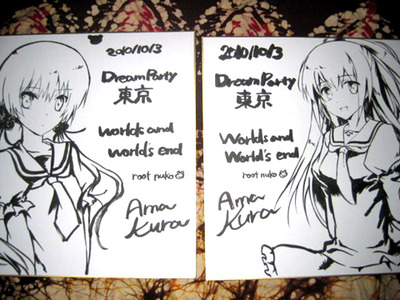 2010/10/3
Dream Party
東京
Worlds and
world's end
root nuko
Ama
Kura
2010/10/3
Dream Party
東京
Worlds and
World's end
root nuko
Ama
Kura